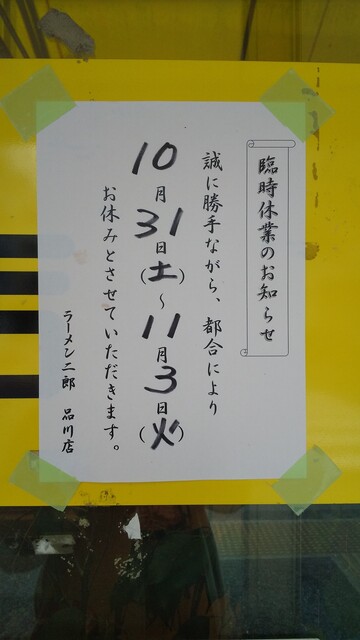 臨時休業のお知らせ
誠に勝手ながら、都合により
10月31日(土)～11月3日(火)
お休みとさせていただきます。
ラーメン二郎 品川店